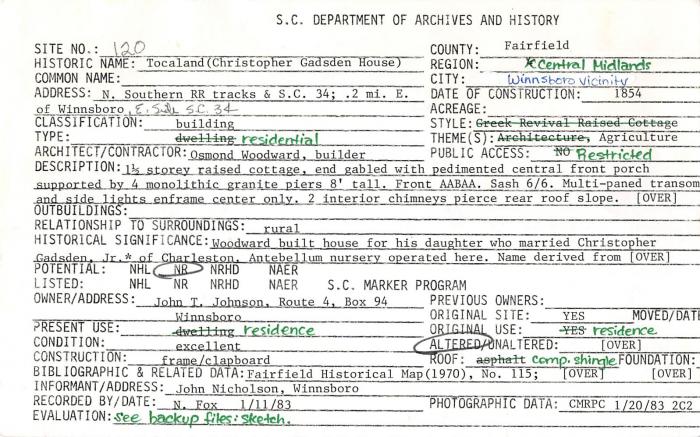 S.C. DEPARTMENT OF ARCHIVES AND HISTORY
SITE NO.: 120 COUNTY: Fairfield
HISTORIC NAME: Tocaland(Christopher Gadsden House) REGION: Central Midlands
COMMON NAME: CITY: Winnsboro vicinity
ADDRESS: N. Southern RR tracks & S.C. 34; .2 mi. E. DATE OF CONSTRUCTION: 1854
of Winnsboro, E. Side S.C. 34 ACREAGE:
CLASSIFICATION: building STYLE: Greek Revival Raised Cottage
TYPE: dwelling residential THEME(S): Architecture, Agriculture
ARCHITECT/CONTRACTOR: Osmond Woodward, builder PUBLIC ACCESS: NO Restricted
DESCRIPTION: 1½ storey raised cottage, end gabled with pedimented central front porch
supported by 4 monolithic granite piers 8' tall. Front AABAA. Sash 6/6. Multi-paned transom
and side lights enframe center only. 2 interior chimneys pierce rear roof slope. [OVER]
OUTBUILDINGS:
RELATIONSHIP TO SURROUNDINGS: rural
HISTORICAL SIGNIFICANCE: Woodward built house for his daughter who married Christopher
Gadsden, Jr.* of Charleston. Antebellum nursery operated here. Name derived from [OVER]
POTENTIAL: NHL NR NRHD NAER
LISTED: NHL NR NRHD NAER S.C. MARKER PROGRAM
OWNER/ADDRESS: John T. Johnson, Route 4, Box 94 PREVIOUS OWNERS:
Winnsboro ORIGINAL SITE: YES MOVED/DATE
PRESENT USE: dwelling residence ORIGINAL USE: YES residence
CONDITION: excellent ALTERED/UNALTERED: [OVER]
CONSTRUCTION: frame/clapboard ROOF: asphalt comp. shingle FOUNDATION:
BIBLIOGRAPHIC & RELATED DATA: Fairfield Historical Map(1970), No. 115; [OVER] [OVER]
INFORMANT/ADDRESS: John Nicholson, Winnsboro
RECORDED BY/DATE: N. Fox 1/11/83 PHOTOGRAPHIC DATA: CMRPC 1/20/83 2C2
EVALUATION: See backup files: sketch.